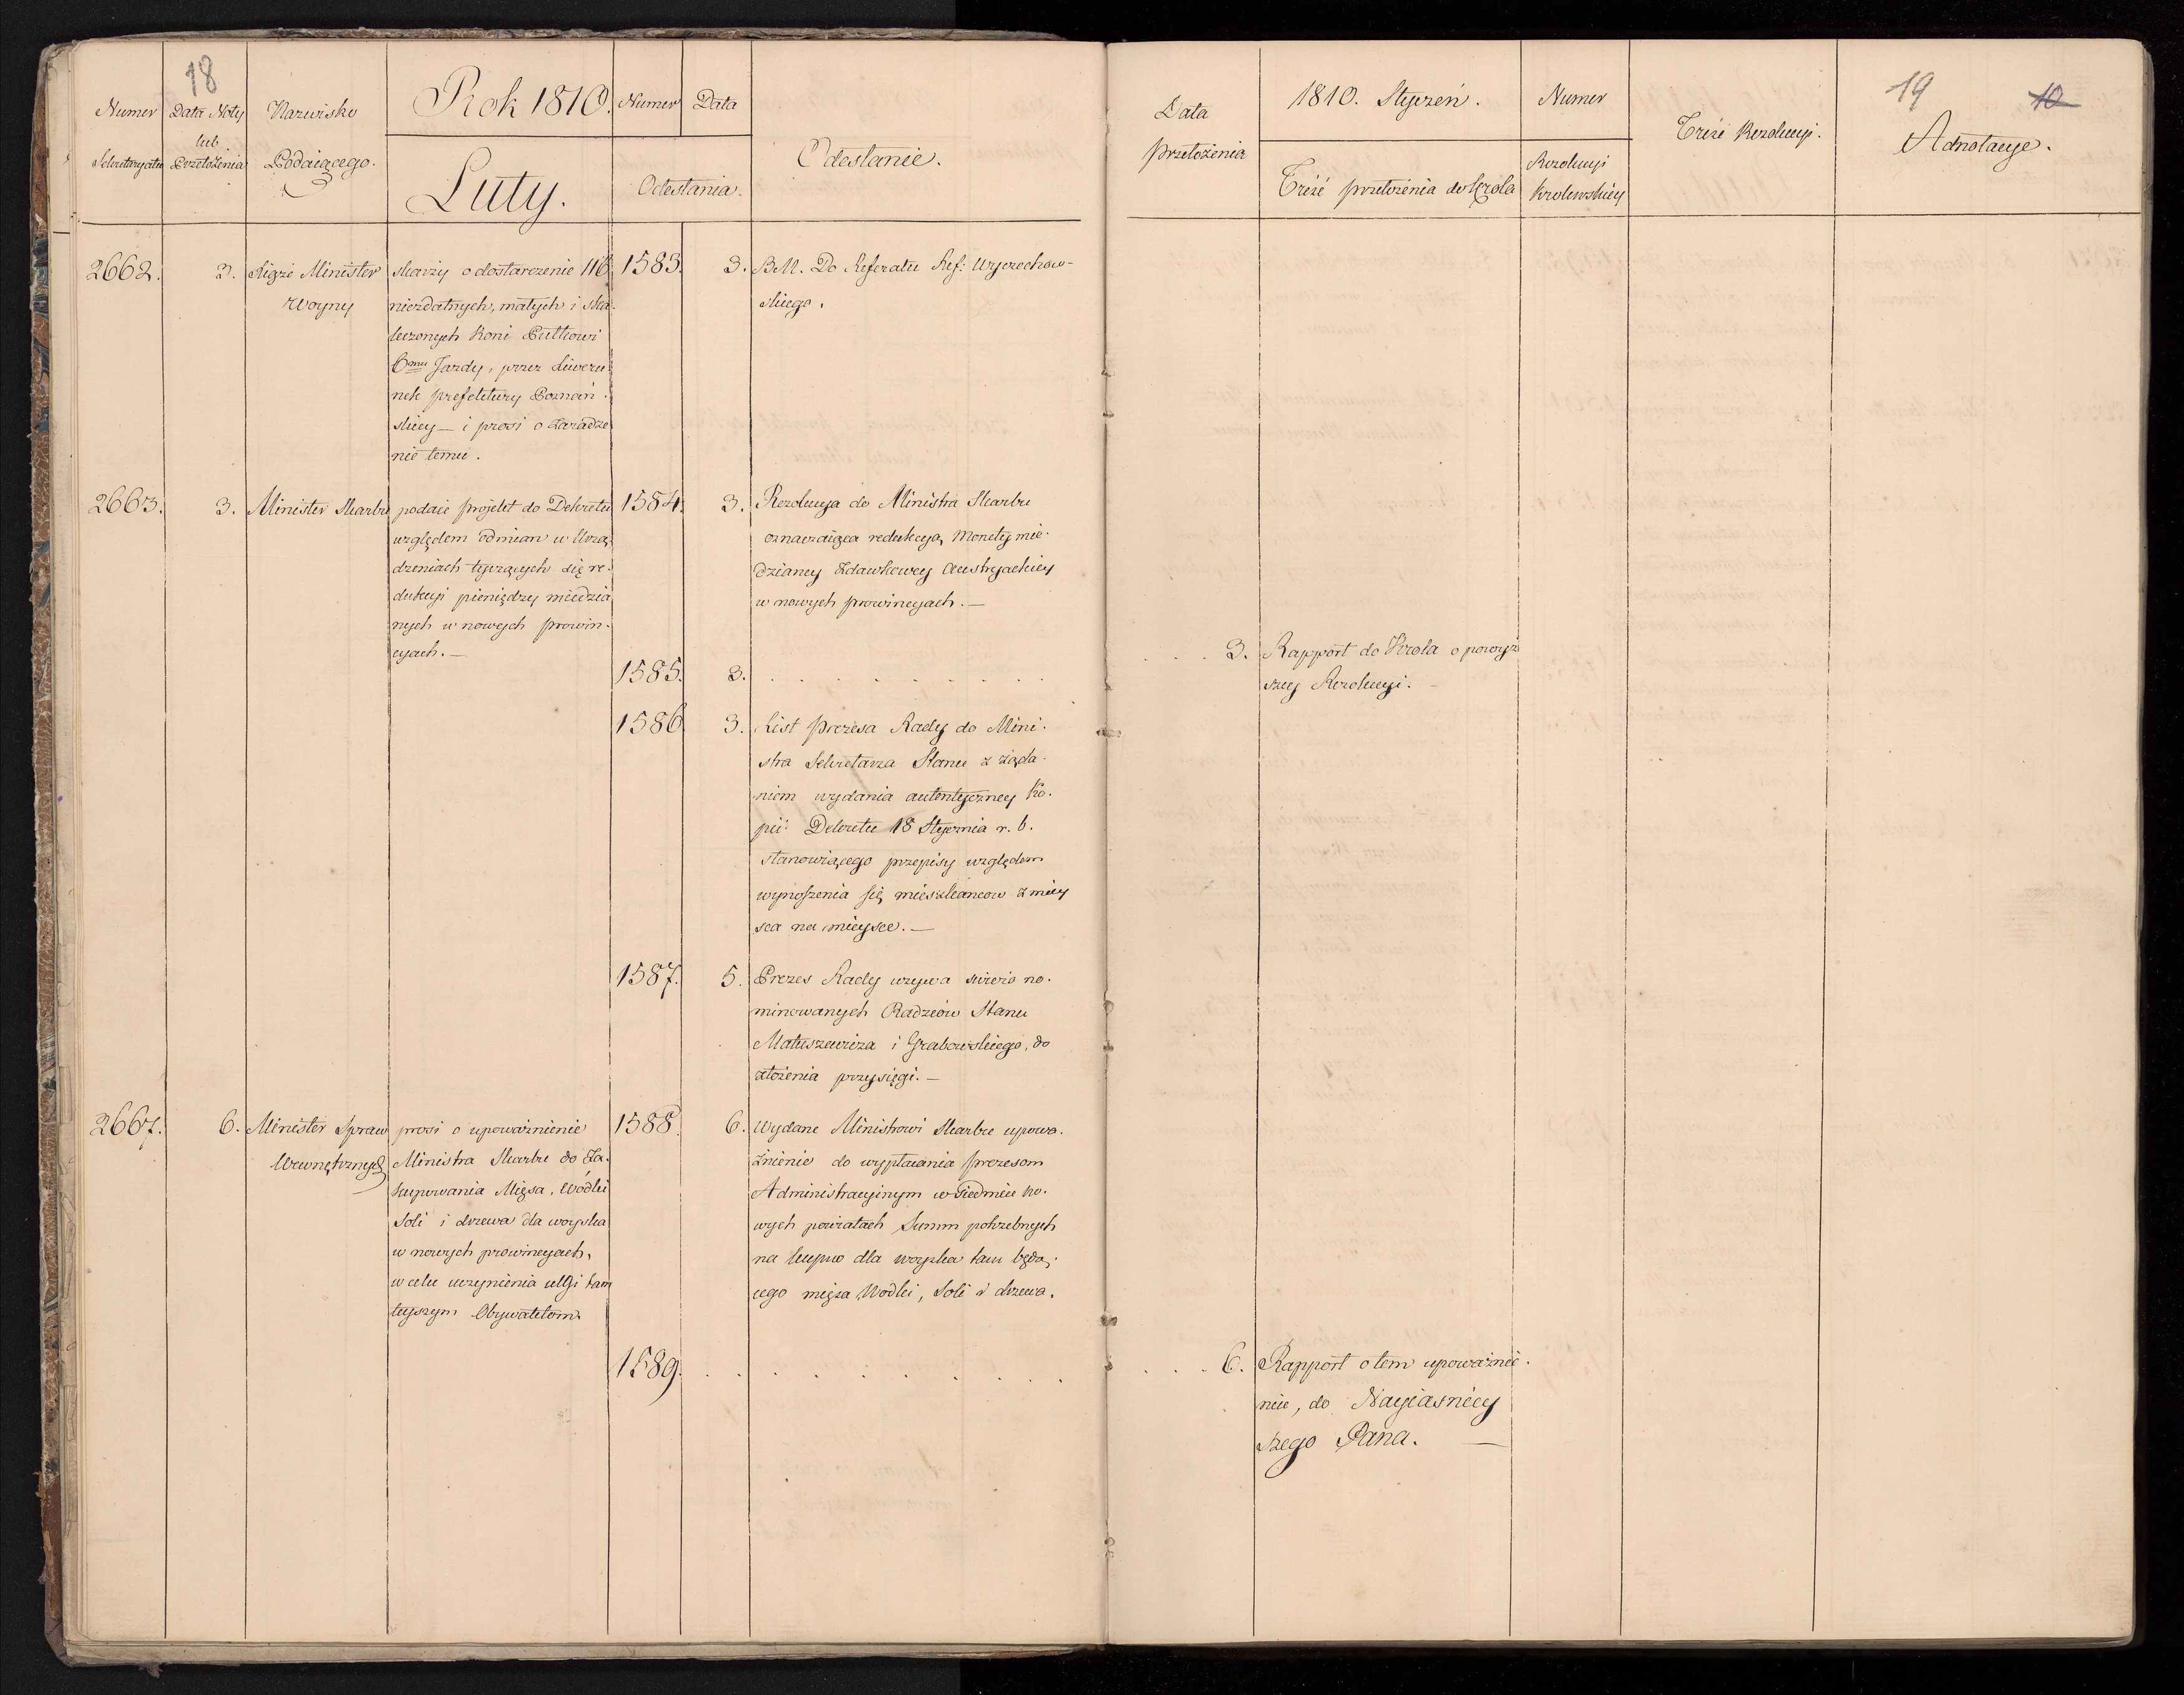 18
Numer
Sekretaryatu
Data Noty
lub
Przełożenia
Nazwisko
Podaiącego.
Rok 1810.
Luty.
Numer
Data
Odesłania.
Odesłanie.
2662.
2.
Xiąże Minister
Woyny
skarży o dostarczenie 116
niezdatnych, małych i ska-
leczonych koni Pułkowi
6mu Jazdy, przez liweru-
nek prefektury Poznań-
skiey — i prosi o zaradze
nie temu.
1583.
3.
BM. Do Referatu Ref: Wyczechow-
skiego.
2663.
3.
Minister Skarbu
podaie projekt do Dekretu
względem odmian w Urzą-
dzeniach tyczących się re-
dukcyi pieniędzy miedzia
nych w nowych prowin-
cyach. —
1584.
3.
Rezolucya do Ministra Skarbu
oznaczaiąca redukcyą Monety mie-
dzianey Zdawkowey Austryackiey
w nowych prowincyach. —
1585.
3.
. . . . . . . . .
1586
3.
List Prezesa Rady do Mini-
stra Sekretarza Stanu z żąda-
niem wydania autentyczney Ko-
pii Dekretu 18 Stycznia r. b.
stanowiącego przepisy względem
wynoszenia się mieszkancow z miey
sca na mieysce. —
1587.
5.
Prezes Rady wzywa swieżo no-
minowanych Radzców Stanu
Matuszewicza i Grabowskiego, do
złożenia przysięgi. —
2667.
6.
Minister Spraw
Wewnętrznych
prosi o upoważnienie
Ministra Skarbu do Za-
kupowania Mięsa, Wódki
Soli i drzewa dla woyska
w nowych prowincyach,
w celu uczynienia ulgi tam
teyszym Obywatelom.
1588.
6.
Wydane Ministrowi Skarbu upowa-
żnienie do wypłacania prezesom
Administracyinym w Siedmiu no-
wych powiatach Summ potrzebnych
na kupno dla woyska tam będą-
cego mięsa, Wodki, Soli i drzewa.
1589.
. . . . . . . . . .
19
10
Data
przełożenia
1810. Styczeń.
Treść przełożenia do Króla
Numer
Rezolucyi
Krolewskiey
Treść Rezolucyi.
Adnotacye.
. . . 3.
Rapport do Krola o powyż
szey Rezolucyi. —
. . . 6.
Rapport o tem upoważnie-
niu, do Nayiasniey
szego Pana. —